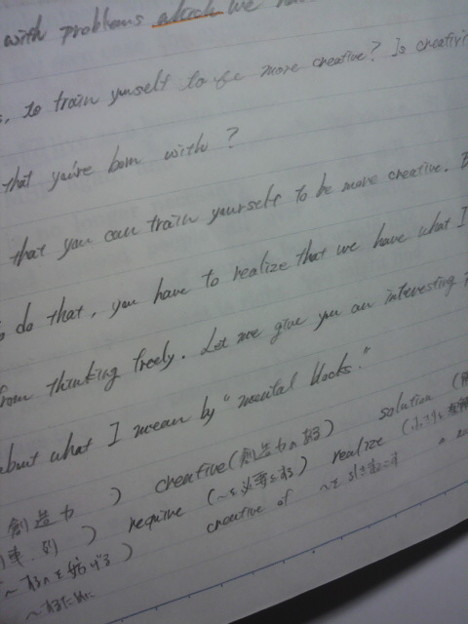 with problems which we
to train yourself to be more creative? Is
that you're born with?
that you can train yourself to be more creative.
do that, you have to realize that we have what I
from thinking freely. Let me give you an interesting
about what I mean by "mental blocks."
創造力 ) creative (創造力のある) solution
) require (〜を必要とする) realize
〜するのを妨げる ) creative of 〜を引き起こす
〜するために